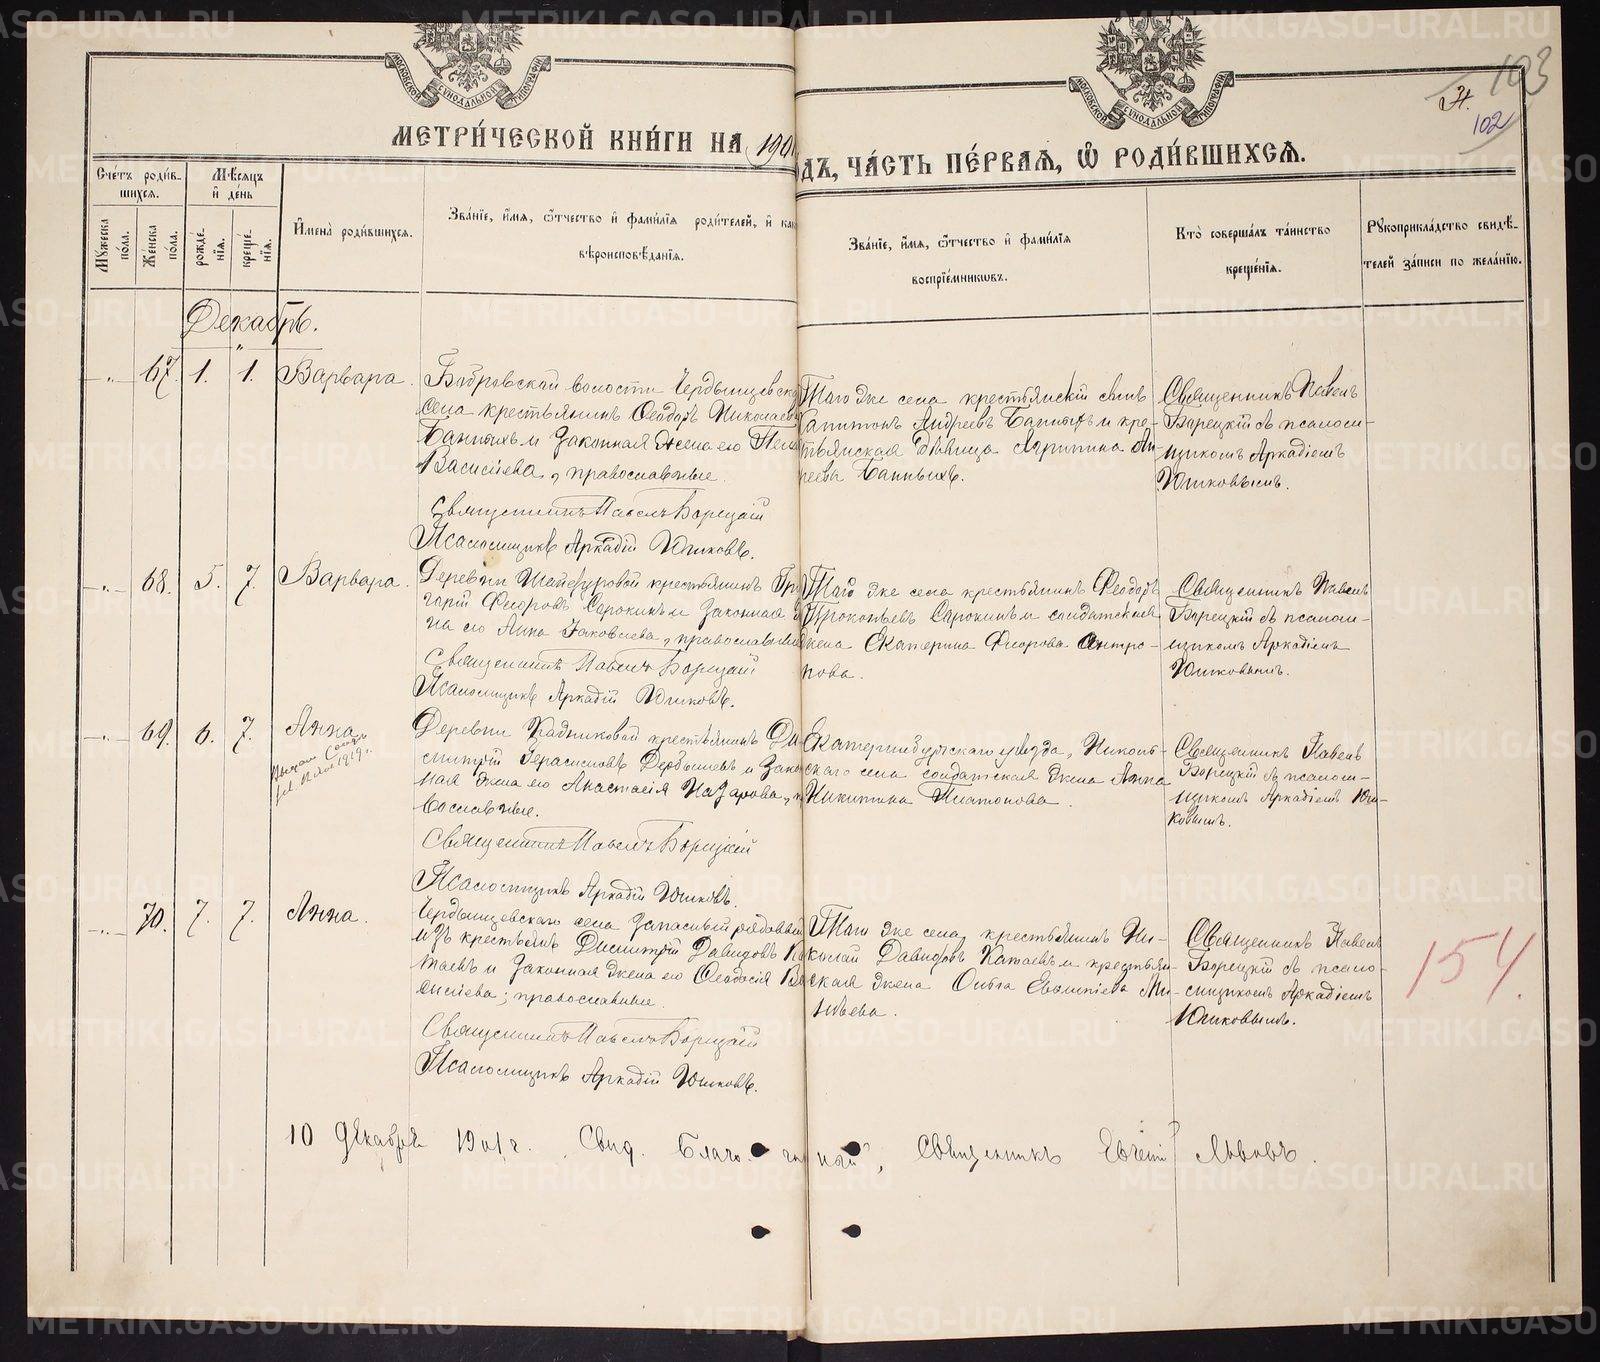 МОСКОВСКОЙ СѴНОДАЛЬНОЙ ТИПОГРАФІИ
МОСКОВСКОЙ СѴНОДАЛЬНОЙ ТИПОГРАФІИ
103
102
МЕТРИ́ЧЕСКОЙ КНИ́ГИ НА 190
ДЪ, ЧА́СТЬ ПЕ́РВАЯ, Ѡ РОДИ́ВШИХСЯ.
Сче́тъ роди́в-
шихся.
Мѣ́сяцъ
и де́нь
Мꙋ́жеска по́ла.
Же́нска по́ла.
рожде́-
нія.
креще́-
нія.
Имена̀ роди́вшихся.
Зва́ніе, и́мя, ѻ҆́тчество и фами́лія роди́телей, и как
вѣроисповѣ́данія.
Зва́ніе, и́мя, ѻ҆́тчество и фами́лія
воспріе́мниковъ.
Кто̀ соверша́лъ та́инство
креще́нія.
Рꙋкоприкла́дство свидѣ́-
телей за́писи по жела́нію.
Декабрь.
67. 1. 1. Варвара.
Бобровской волости Чердынцевск
села крестьянинъ Ѳеодоръ Николаевъ
Банныхъ и законная жена его Пела
Василіева, православные.
Священникъ Павелъ Борецкій
Псаломщикъ Аркадій Юшковъ.
Того же села крестьянскій сынъ
Капитонъ Андреевъ Банныхъ и кре-
стьянская дѣвица Агрипина Ан
реева Банныхъ.
Священникъ Павелъ
Борецкій съ псалом-
щикомъ Аркадіемъ
Юшковымъ.
68. 5. 7. Варвара.
Деревни Шайдуровой крестьянинъ Гри
горій Ѳеоровъ Сорокинъ и законная
на его Анна Іаковлева, православные
Священникъ Павелъ Борецкій
Псаломщикъ Аркадій Юшковъ.
Того же села крестьянинъ Ѳеодоръ
Прокопьевъ Сорокинъ и солдатская
жена Екатерина Ѳеорова Антро-
пова.
Священникъ Павелъ
Борецкій съ псалом-
щикомъ Аркадіемъ
Юшковымъ.
69. 6. 7. Анна
1919 г.
Деревни Кадниковой крестьянинъ Ди
митрій Герасимовъ Дербышевъ и зако
ная жена его Анастасія Назарова, п
вославные.
Священникъ Павелъ Борецкій
Псаломщикъ Аркадій Юшковъ.
Екатеринбургскаго уѣзда, Николь-
скаго села солдатская жена Анна
Никитина Платонова.
Священникъ Павелъ
Борецкій съ псалом-
щикомъ Аркадіемъ Юш-
ковымъ.
70. 7. 7. Анна.
Чердынцевскаго села запасный рядовый
изъ крестьянъ Димитрій Давидовъ Ка
таевъ и законная жена его Ѳеодосія Ва
силіева; православные.
Священникъ Павелъ Борецкій
Псаломщикъ Аркадій Юшковъ.
Того же села, крестьянинъ Ни-
колай Давидовъ Катаевъ и крестьян-
ская жена Ольга Евлампіева Ми-
Священникъ Павелъ
Борецкій съ псало-
мщикомъ Аркадіемъ
Юшковымъ.
154.
10 декабря 1901 г. Свид. Благо чинный, Священникъ Евгеній Львовъ.
METRIKI.GASO-URAL.RU